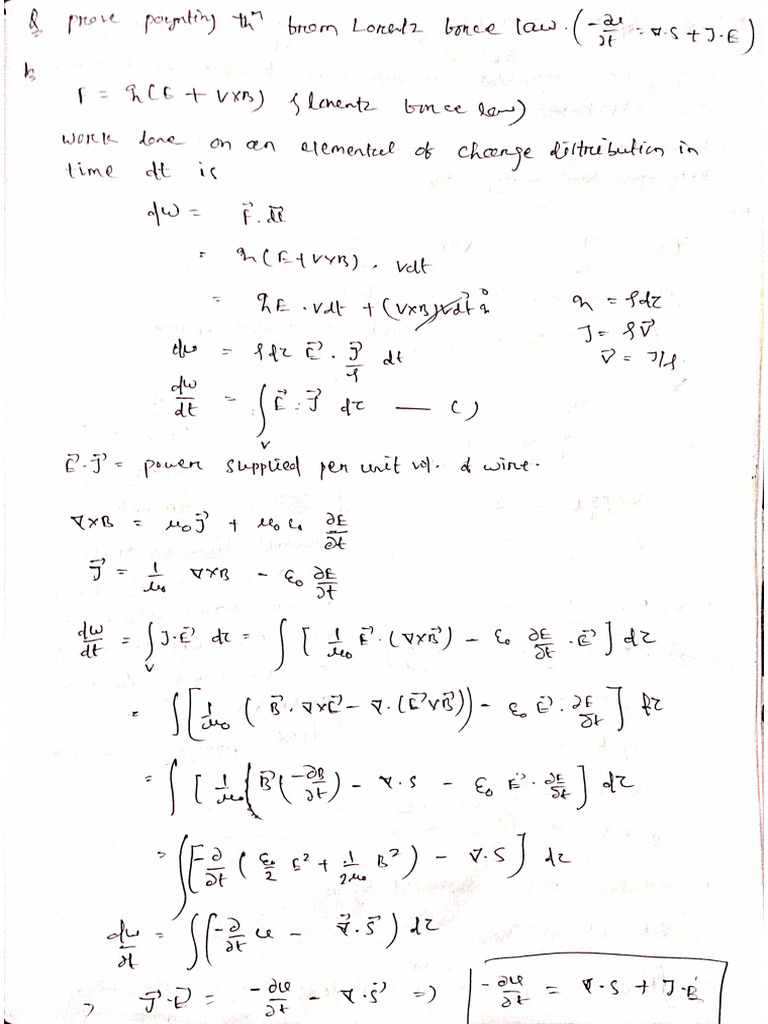 Q prove poynting thm from Lorentz force law. (-∂u/∂t = ∇·S + J·E)
F = q(E + V×B) {Lorentz force law}
work done on an elemental of charge distribution in
time dt is
dW = F⃗ . dl⃗
= q(E+V×B) . vdt
= qE . vdt + (V×B)vdt q 0
q = ρdτ
J = ρV⃗
V⃗ = J/ρ
dw = ρdτ E⃗ . J⃗/ρ dt
dw/dt = ∫_V E⃗ . J⃗ dτ — ( )
E⃗.J⃗ = power supplied per unit vol. of wire.
∇×B = μ₀J⃗ + μ₀ε₀ ∂E/∂t
J⃗ = 1/μ₀ ∇×B - ε₀ ∂E/∂t
dw/dt = ∫_V J·E⃗ dτ = ∫ [ 1/μ₀ E⃗.(∇×B⃗) - ε₀ ∂E/∂t . E⃗ ] dτ
= ∫ [ 1/μ₀ ( B⃗. ∇×E⃗ - ∇.(E⃗×B⃗)) - ε₀ E⃗. ∂E/∂t ] dτ
= ∫ [ 1/μ₀ { B⃗(-∂B/∂t) - ∇·S - ε₀ E⃗. ∂E/∂t ] dτ
= ∫ [ -∂/∂t ( ε₀/2 E² + 1/2μ₀ B² ) - ∇·S ] dτ
dw/dt = ∫ ( -∂/∂t u - ∇⃗.S⃗ ) dτ
, J⃗·E⃗ = -∂u/∂t - ∇·S⃗ => -∂u/∂t = ∇·S + J·E